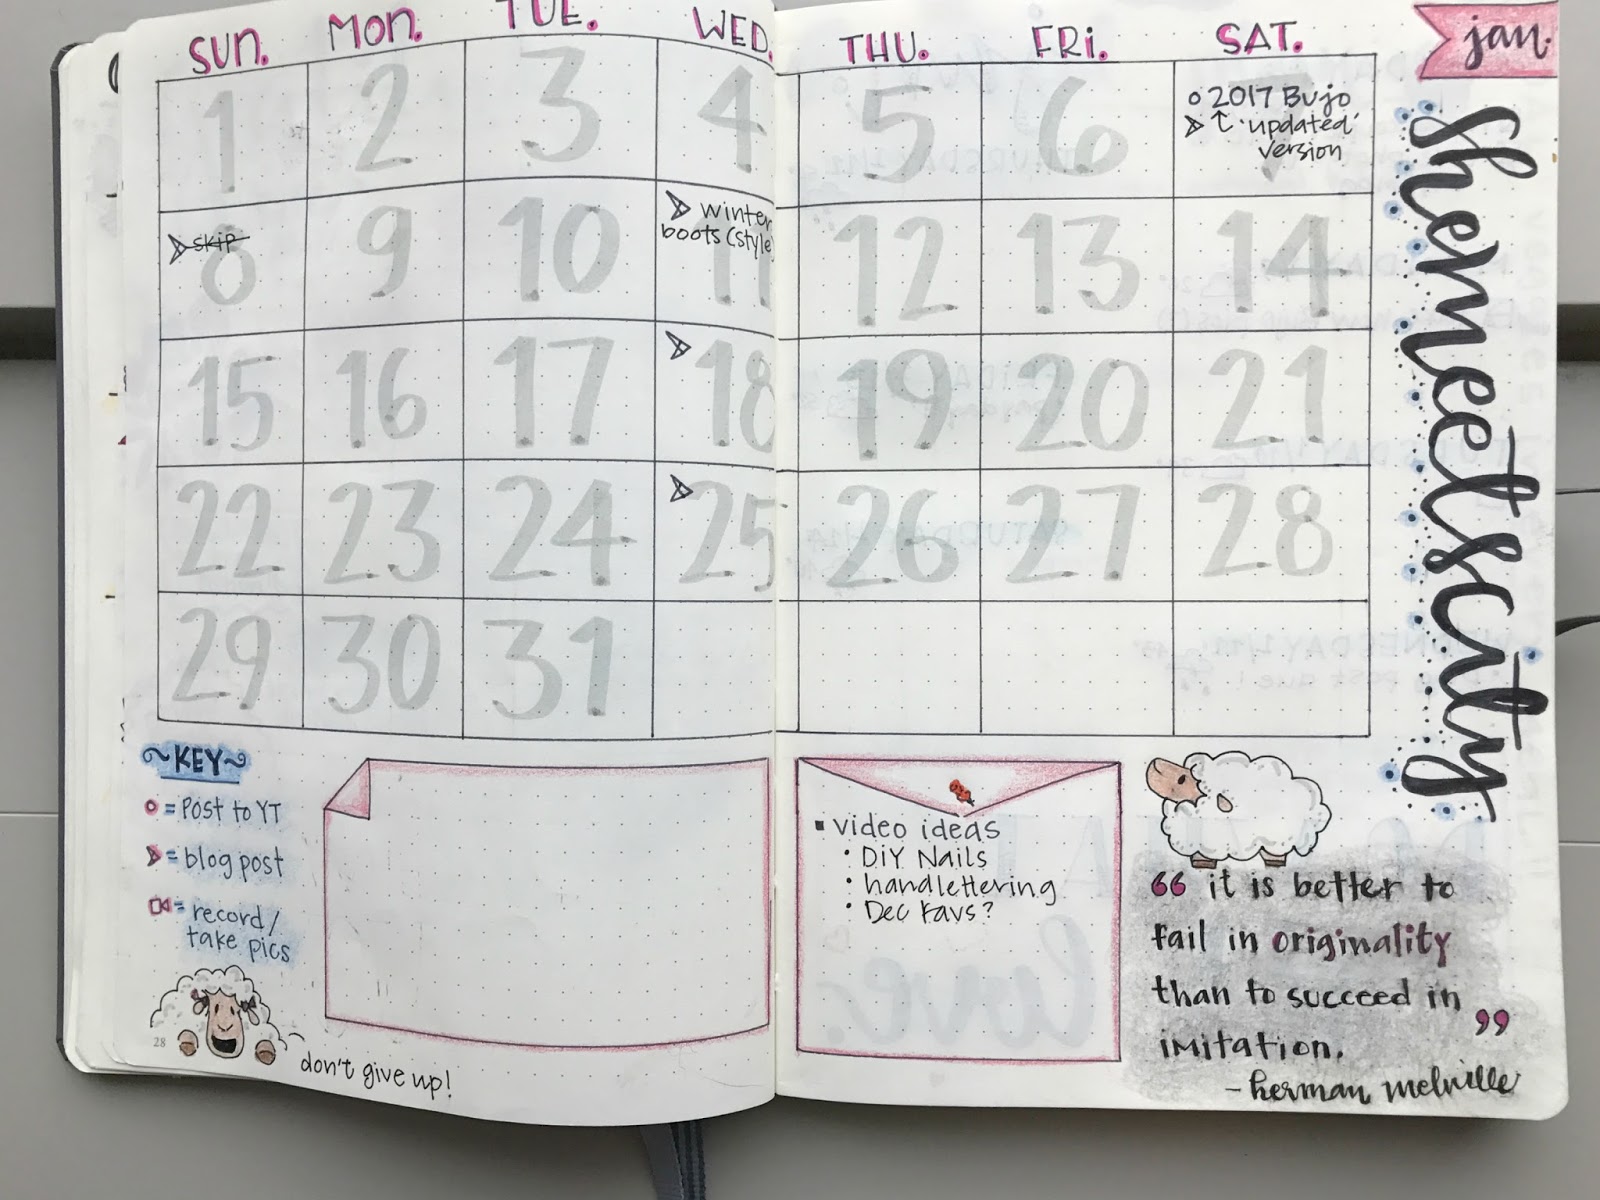 SUN. MON. TUE. WED. THU. FRI. SAT.
jan.
shemeetscaty
1 2 3 4 5 6 7
2017 Bujo
'updated'
version
8 9 10 11 12 13 14
skip
winter
boots (style)
15 16 17 18 19 20 21
22 23 24 25 26 27 28
29 30 31
~KEY~
o = Post to YT
= blog post
= record/
take pics
28
don't give up!
▪ video ideas
• DIY Nails
• handlettering
• Dec Favs?
“ it is better to
fail in originality
than to succeed in
imitation. ”
- herman melville